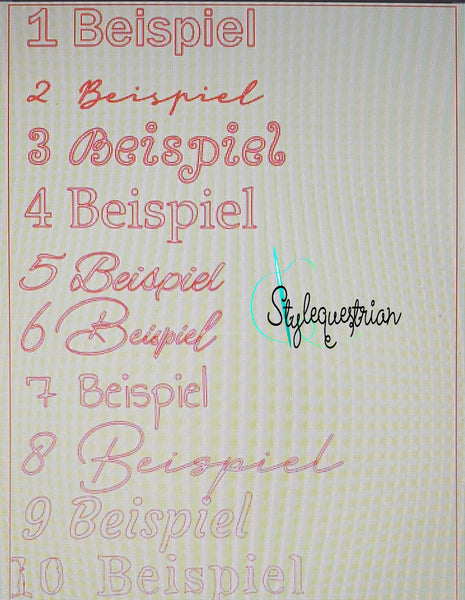 1 Beispiel
2 Beispiel
3 Beispiel
4 Beispiel
5 Beispiel
Stylequestrian
6 Beispiel
7 Beispiel
8 Beispiel
9 Beispiel
10 Beispiel